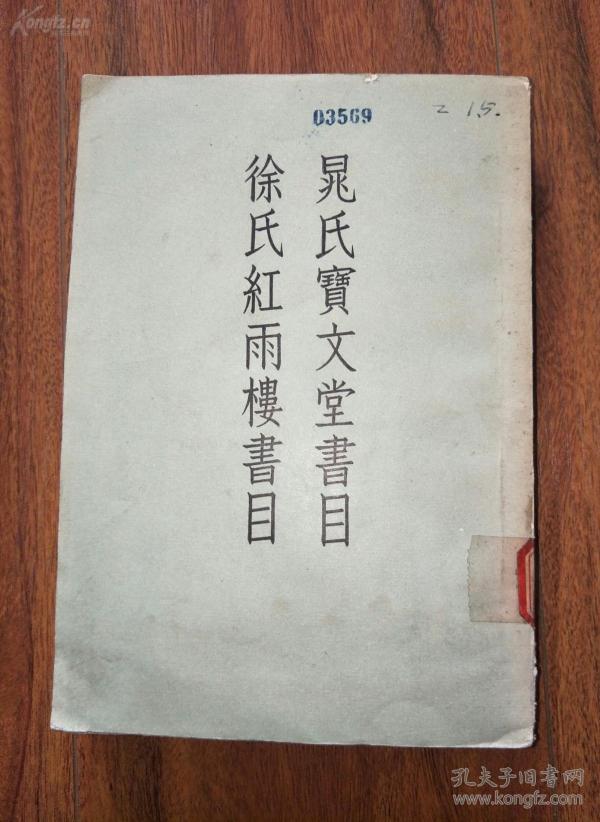 Kongfz.cn
03569
晁氏寶文堂書目
徐氏紅雨樓書目
孔夫子旧书网
www.kongfz.com